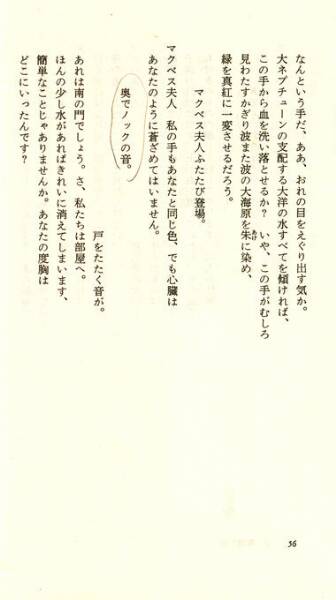 なんという手だ、ああ、おれの目をえぐり出す気か。
大ネプチューンの支配する大洋の水すべてを傾ければ、
この手から血を洗い落とせるか？　いや、この手がむしろ
見わたすかぎり波また波の大海原を朱に染め、
あけ
緑を真紅に一変させるだろう。
マクベス夫人ふたたび登場。
マクベス夫人　私の手もあなたと同じ色、でも心臓は
あなたのように蒼ざめてはいません。
奥でノックの音。
戸をたたく音が。
あれは南の門でしょう。さ、私たちは部屋へ。
ほんの少し水があればきれいに消えてしまいます、
簡単なことじゃありませんか。あなたの度胸は
どこにいったんです？
56